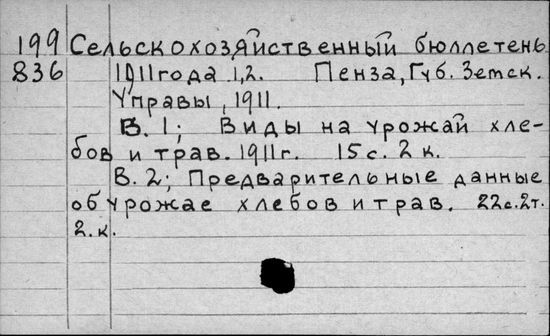 199 Сельскохозяйственный бюллетень
836 1911 года 1,2. Пенза, Губ. Земск.
Управы, 1911.
В. 1; Виды на урожай хле-
бов и трав. 1911 г. 15 с. 2 к.
В. 2; Предварительные данные
об урожае хлебов и трав. 22 с. 2 т.
2. к.